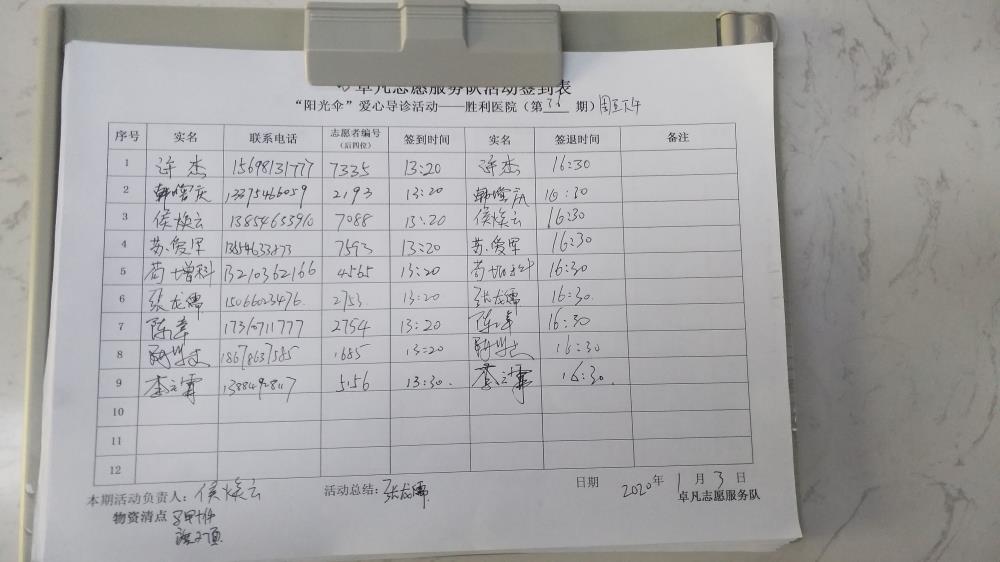 卓凡志愿服务队活动签到表
“阳光伞”爱心导诊活动——胜利医院（第 期）周五下午
序号 实名 联系电话 志愿者编号（后四位） 签到时间 实名 签退时间 备注
1 许杰 15698131777 7335 13:20 许杰 16:30
2 2193 13:20 16:30
3 侯焕云 13854653910 7088 13:20 侯焕云 16:30
4 苏俊军 7593 13:20 苏俊军 16:30
5 苟增科 13210362166 4565 13:20 苟增科 16:30
6 张龙儒 15066023476 2753 13:20 张龙儒 16:30
7 陈章 17310711777 2754 13:20 陈章 16:30
8 18678637585 1685 13:20 16:30
9 李云霄 5156 13:30 李云霄 16:30
10
11
12
本期活动负责人：侯焕云 活动总结：张龙儒 日期 2020年1月3日
物资清点 卓凡志愿服务队